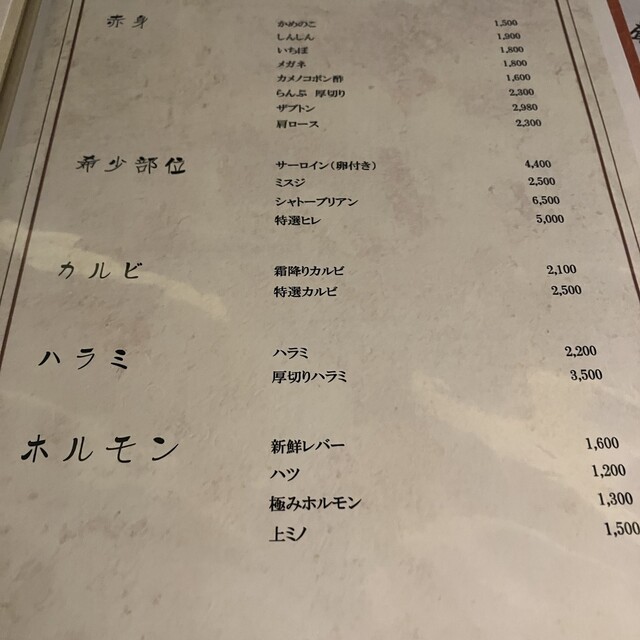 赤身
かめのこ 1,500
しんしん 1,900
いちぼ 1,800
メガネ 1,800
カメノコポン酢 1,600
らんぷ 厚切り 2,300
ザブトン 2,980
肩ロース 2,300
希少部位
サーロイン(卵付き) 4,400
ミスジ 2,500
シャトーブリアン 6,500
特選ヒレ 5,000
カルビ
霜降りカルビ 2,100
特選カルビ 2,500
ハラミ
ハラミ 2,200
厚切りハラミ 3,500
ホルモン
新鮮レバー 1,600
ハツ 1,200
極みホルモン 1,300
上ミノ 1,500